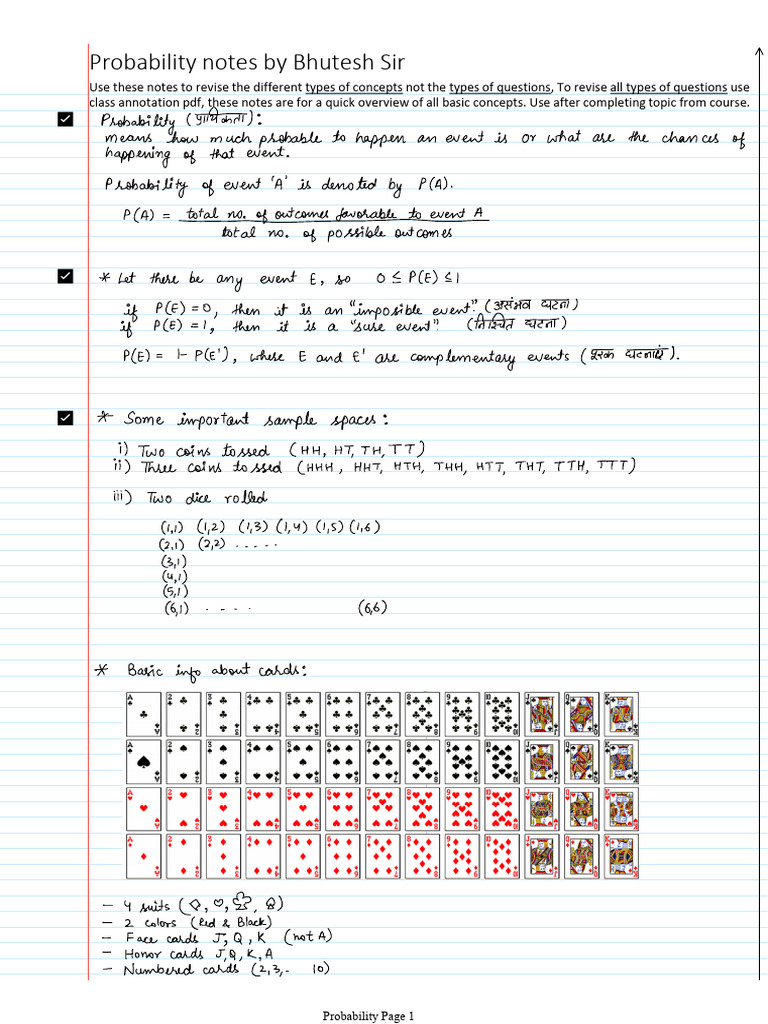 Probability notes by Bhutesh Sir
Use these notes to revise the different types of concepts not the types of questions, To revise all types of questions use
class annotation pdf, these notes are for a quick overview of all basic concepts. Use after completing topic from course.
Probability (प्रायिकता):
means how much probable to happen an event is or what are the chances of
happening of that event.
Probability of event 'A' is denoted by P(A).
P(A) = total no. of outcomes favorable to event A
total no. of possible outcomes
* Let there be any event E, so 0 ≤ P(E) ≤ 1
if P(E) = 0, then it is an "imposible event". (असंभव घटना)
if P(E) = 1, then it is a "sure event". (निश्चित घटना)
P(E) = 1 - P(E'), where E and E' are complementary events (पूरक घटनाएं).
* Some important sample spaces:
i) Two coins tossed (HH, HT, TH, TT)
ii) Three coins tossed (HHH, HHT, HTH, THH, HTT, THT, TTH, TTT)
iii) Two dice rolled
(1,1) (1,2) (1,3) (1,4) (1,5) (1,6)
(2,1) (2,2) .....
(3,1)
(4,1)
(5,1)
(6,1) ..... (6,6)
* Basic info about cards:
A 2 3 4 5 6 7 8 9 10 J Q K
A 2 3 4 5 6 7 8 9 10 J Q K
A 2 3 4 5 6 7 8 9 10 J Q K
A 2 3 4 5 6 7 8 9 10 J Q K
- 4 suits (♢, ♡, ♧, ♤)
- 2 colors (Red & Black)
- Face cards J, Q, K (not A)
- Honor cards J, Q, K, A
- Numbered cards (2,3,.. 10)
Probability Page 1